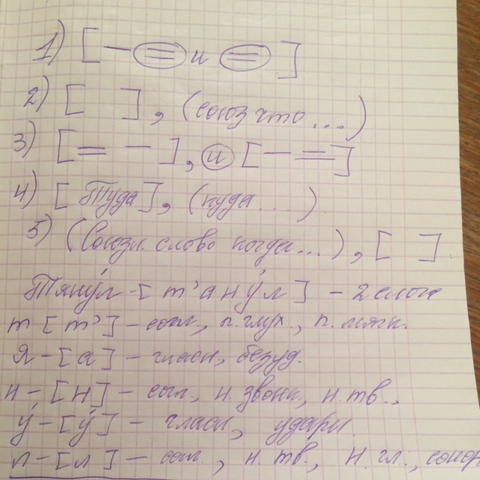 1) [ — = и = ]
2) [ ], (союз что ...)
3) [ = — ], и [ — = ]
4) [ Туда ], (куда ...)
5) (союзн. слово когда ...), [ ].
Тянýл - [ т'анýл ] - 2 слога
т [т'] - согл., п. глух., п. мягк.
я - [а] - гласн., безуд.
н - [н] - согл., н. звонк., н. тв.,
ý - [ý] - гласн., ударн
л - [л] - согл., н. тв., н. гл., сонор